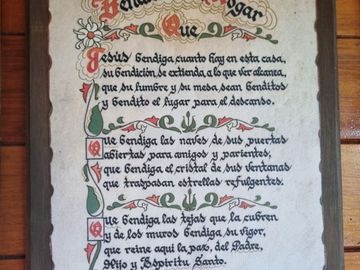 Hogar
Que
Jesús bendiga cuanto hay en esta casa,
su bendición se extienda a lo que ver alcanza,
que su lumbre y su mesa sean benditos
y bendito el lugar para el descanso.
Que bendiga las naves de sus puertas
abiertas para amigos y parientes,
que bendiga el cristal de sus ventanas
que traspasan estrellas refulgentes.
Que bendiga las tejas que la cubren
y de los muros bendiga su vigor,
que reine aquí la paz, del Padre,
Hijo y Espíritu Santo.